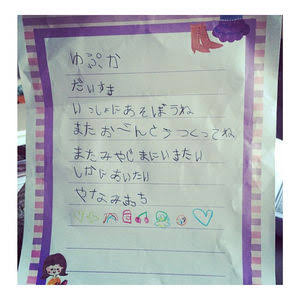 ゆぷか
だいすき
いっしょにあそぼうね
またおべんとうつくってね
またみやじまにいきたい
しかにあいたい
やなみおち